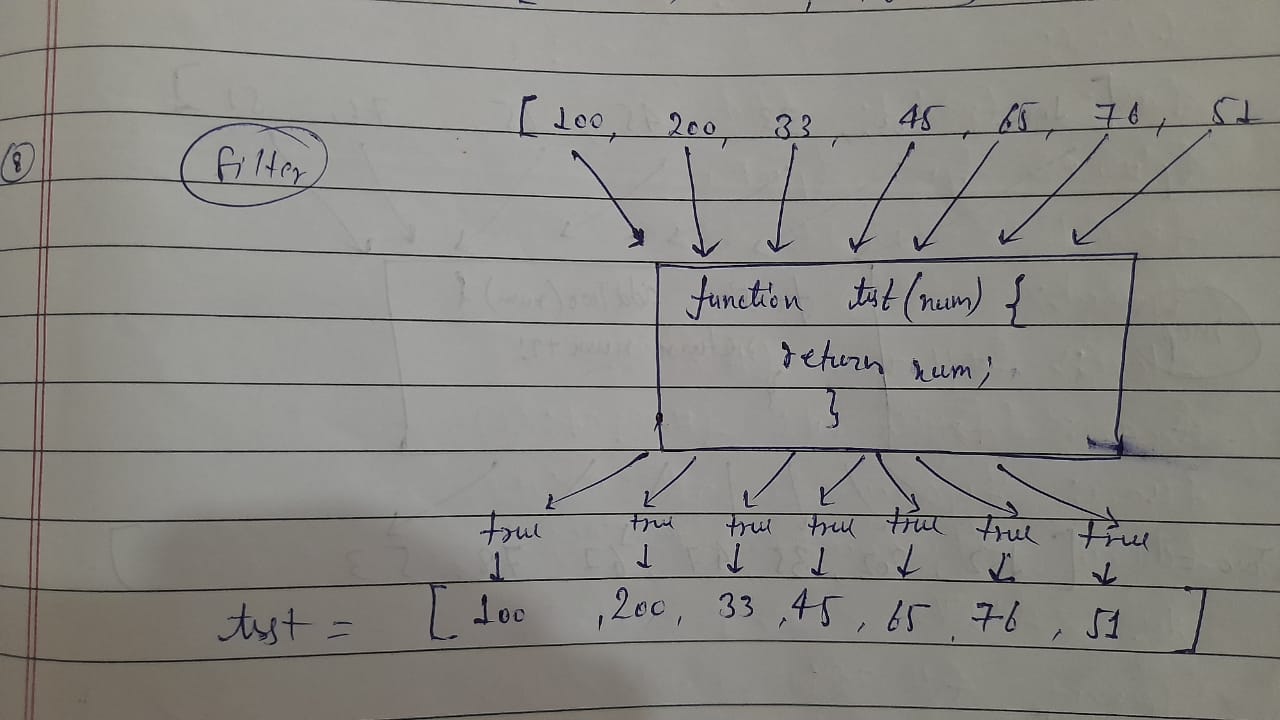 [ 100, 200, 33, 45, 65, 76, 51
8 filter
function test(num) {
return num;
}
true true true true true true true
test = [ 100, 200, 33, 45, 65, 76, 51 ]